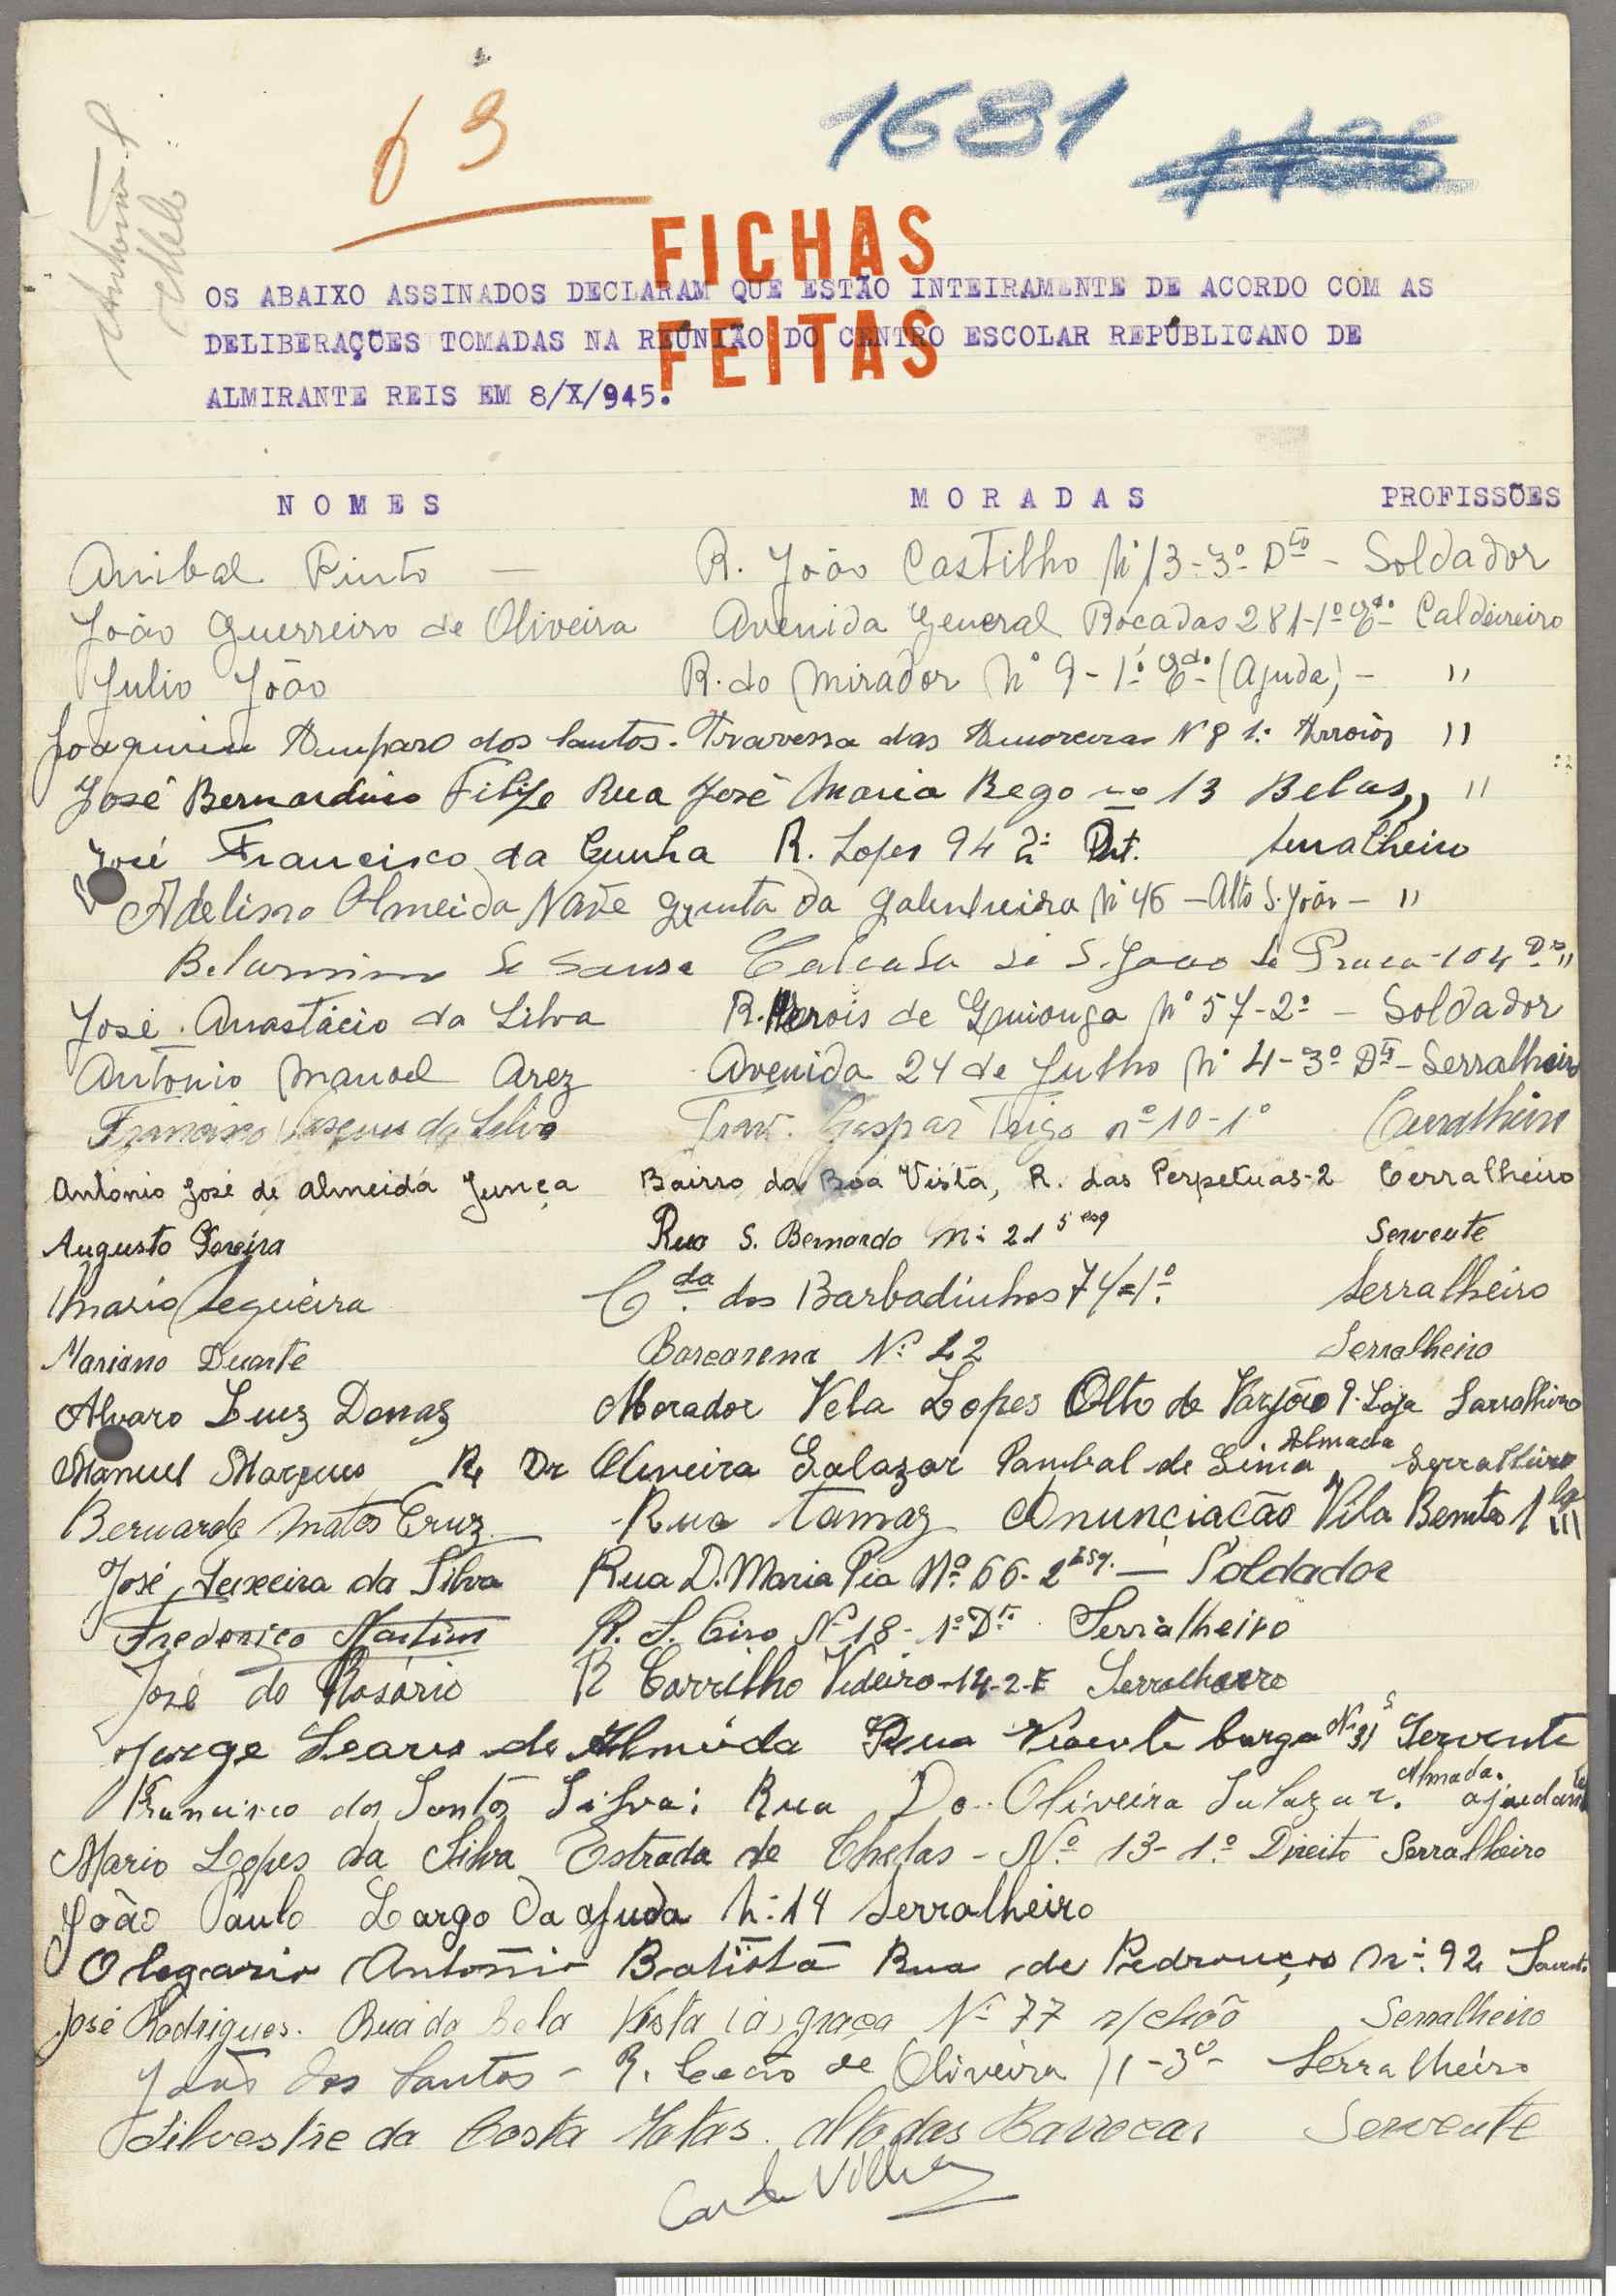 63
1681
António
FICHAS
FEITAS
OS ABAIXO ASSINADOS DECLARAM QUE ESTÃO INTEIRAMENTE DE ACORDO COM AS
DELIBERAÇÕES TOMADAS NA REÚNIÃO DO CENTRO ESCOLAR REPÚBLICANO DE
ALMIRANTE REIS EM 8/X/945.
NOMES MORADAS PROFISSÕES
Anibal Pinto — R. João Castilho Nº 13-3º Dto - Soldador
João Guerreiro de Oliveira Avenida General Rocadas 281-1º Edo Caldeireiro
Julio João R. do Mirador Nº 9-1º Edo (Ajuda) - "
Joaquim Amparo dos Santos. Travessa das Amoreiras Nº 8 1º Arroios "
José Bernardino Filipe Rua José Maria Rego nº 13 Belas,, "
José Francisco da Cunha R. Lopes 94 2º Drt. Serralheiro
Adelino Almeida Nave Quinta da Nº 46 - Alto S. João - "
Belarmino de Sousa Calcada de S. Joao de Praca - 104 Dto "
José Anastácio da Silva R. Herois de Quionga Nº 57-2º - Soldador
António Manoel Arez Avenida 24 de Julho Nº 4-3º Dto - Serralheiro
Francisco da Silva Trav. Gaspar Trigo nº 10-1º Cerralheiro
António José de Almeida Junça Bairro da Boa Vista, R. das Perpetuas-2 Cerralheiro
Augusto Pereira Rua S. Bernardo Nº 21 5 esq Servente
Mario Sequeira Cda. dos Barbadinhos 74=1º Serralheiro
Mariano Duarte Barcarena Nº 22 Serralheiro
Alvaro Luiz Morador Vela Lopes Alto de Varjão 9. Loja Sarralheiro
Manuel Marques R. Dr Oliveira Salazar de Almada Serralheiro
Bernardo Matos Cruz Rua Tomaz Anunciacão Vila Bento 1
José Teixeira da Silva Rua D. Maria Pia Nº 66-2 Esq. — Soldador
Frederico Martins R. S. Ciro Nº 18-1º Dto. Serralheiro
José do Rosário R Carrilho Videiro-14-2-E Serralheiro
Jorge Soares de Almeida Rua Vicente Borga Nº 31 Servente
Francisco dos Santos Silva: Rua Do. Oliveira Salazar. Almada. ajudante
Mario Lopes da Silva Estrada de Chelas - Nº 13-1º Direito Serralheiro
João Paulo Largo da Ajuda Nº 14 Serralheiro
Olegario António Batista Rua de Pedrouços Nº 92
José Rodrigues. Rua da Bela Vista (á) graça Nº 77 r/chão Serralheiro
João dos Santos - R. de Oliveira 11-3º - Serralheiro
Silvestre da Costa Matas. alto das Barrocas Servente